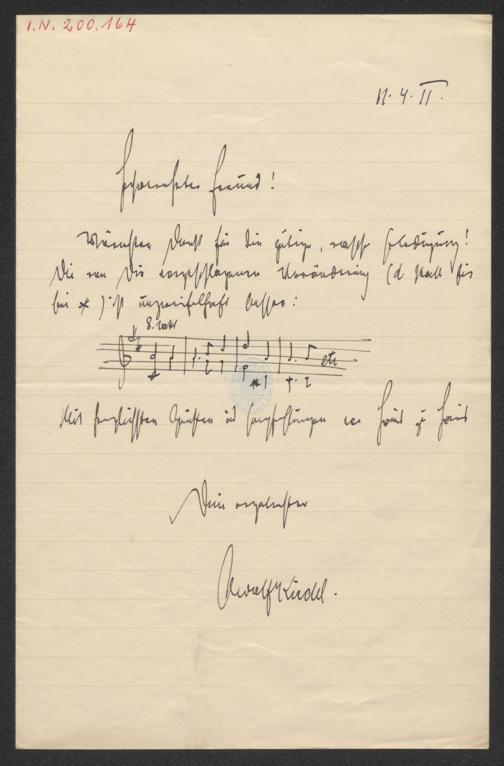 I.N. 200.164
11. 4. II.
Hochverehrter Freund!
Wärmsten Dank für die gütige, rasche Erledigung!
Die von Dir vorgeschlagene Veränderung (d statt fis
bei *) ist unzweifelhaft besser:
8. Takt
etc
Mit herzlichsten Grüßen und Empfehlungen von Haus zu Haus
Dein ergebenster